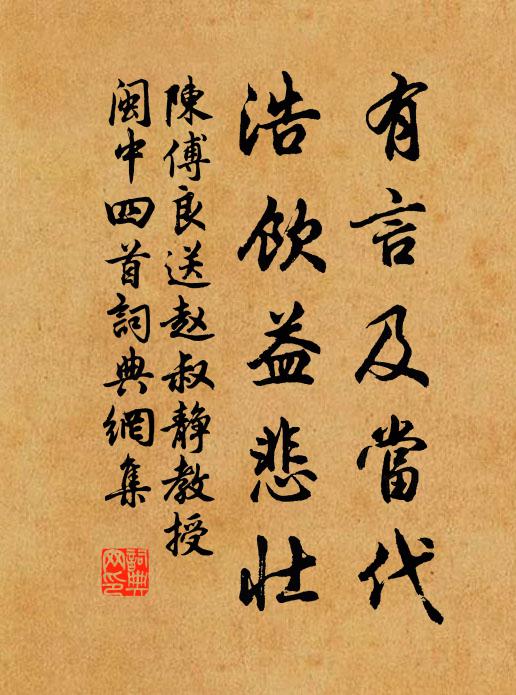 有言及當代
浩飲益悲壯
陳傅良送赵叔静教授
閩中四首詞典網集
詞典網印